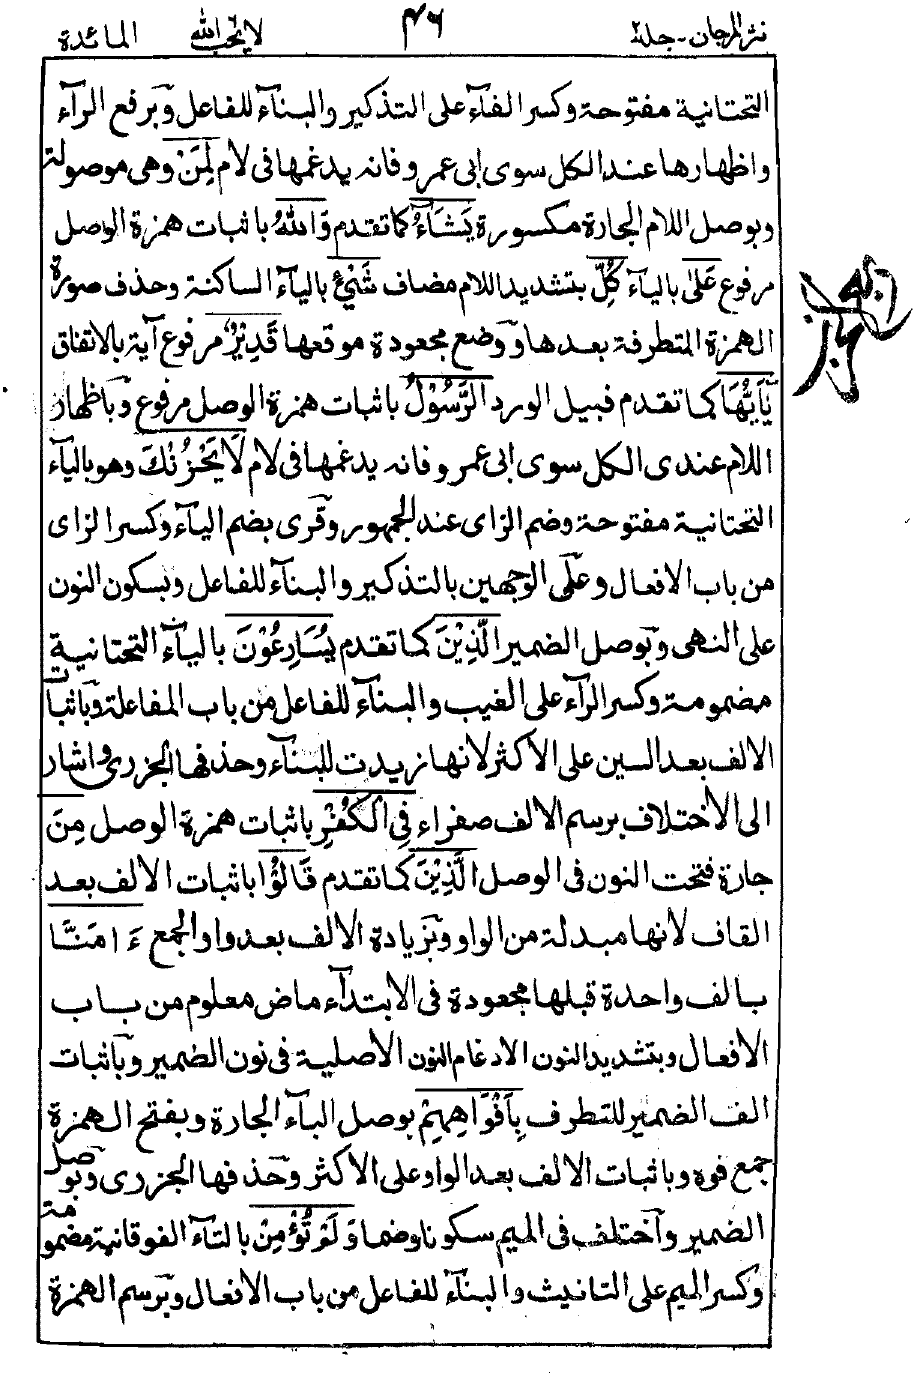 نثر المرجان - جلد ٢ ٤٦ لا يحب الله المائدة
التحتانية مفتوحة وكسر الفآء على التذكير والبنآء للفاعل وبرفع الرآء
واظهارها عند الكل سوى ابى عمرو فانه يدغمها فى لام لِمَنْ وهى موصولة
وبوصل اللام الجارة مكسورة يَشَآءُ كما تقدم وَاللهُ باثبات همزة الوصل
مرفوع عَلٰى بالياء كُلِّ بتشديد اللام مضاف شَىْءٍ باليآء الساكنة وحذف صورة
الهمزة المتطرفة بعدها ووضع مجعودة موقعها قَدِيْرٌ مرفوع آية بالاتفاق
يٰٓاَيُّهَا كما تقدم قبيل الورد الرَّسُوْلُ باثبات همزة الوصل مرفوع وباظهار
اللام عندى الكل سوى ابى عمرو فانه يدغمها فى لام لَا يَحْزُنْكَ وهو باليآء
التحتانية مفتوحة وضم الزاى عند الجمهور وقرى بضم اليآء وكسر الزاى
من باب الافعال وعلى الوجهين بالتذكير والبنآء للفاعل وبسكون النون
على النهى وبوصل الضمير الَّذِيْنَ كما تقدم يُسَارِعُوْنَ باليآء التحتانية
مضمومة وكسر الرآء على الغيب والبنآء للفاعل من باب المفاعلة وباثبات
الالف بعد السين على الاكثر لانها زيدت للبنآء وحذفها الجزرى واشار
الى الاختلاف برسم الالف صفراء فِى الْكُفْرِ باثبات همزة الوصل مِنَ
جارة فتحت النون فى الوصل الَّذِيْنَ كما تقدم قَالُوْا باثبات الالف بعد
القاف لانها مبدلة من الواو وبزيادة الالف بعد واو الجمع ءَامَنَّا
بالف واحدة قبلها مجعودة فى الابتدآء ماض معلوم من باب
الافعال وبتشديد النون الادغام النون الاصلية فى نون الضمير وباثبات
الف الضمير للتطرف بِاَفْوَاهِهِمْ بوصل البآء الجارة وبفتح الهمزة
جمع فوه وباثبات الالف بعد الواو على الاكثر وحذفها الجزرى وبوصل
الضمير واختلف فى الميم سكونا وضما وَلَمْ تُؤْمِنْ بالتآء الفوقانية مضمومة
وكسر الميم على التانيث والبنآء للفاعل من باب الافعال وبرسم الهمزة